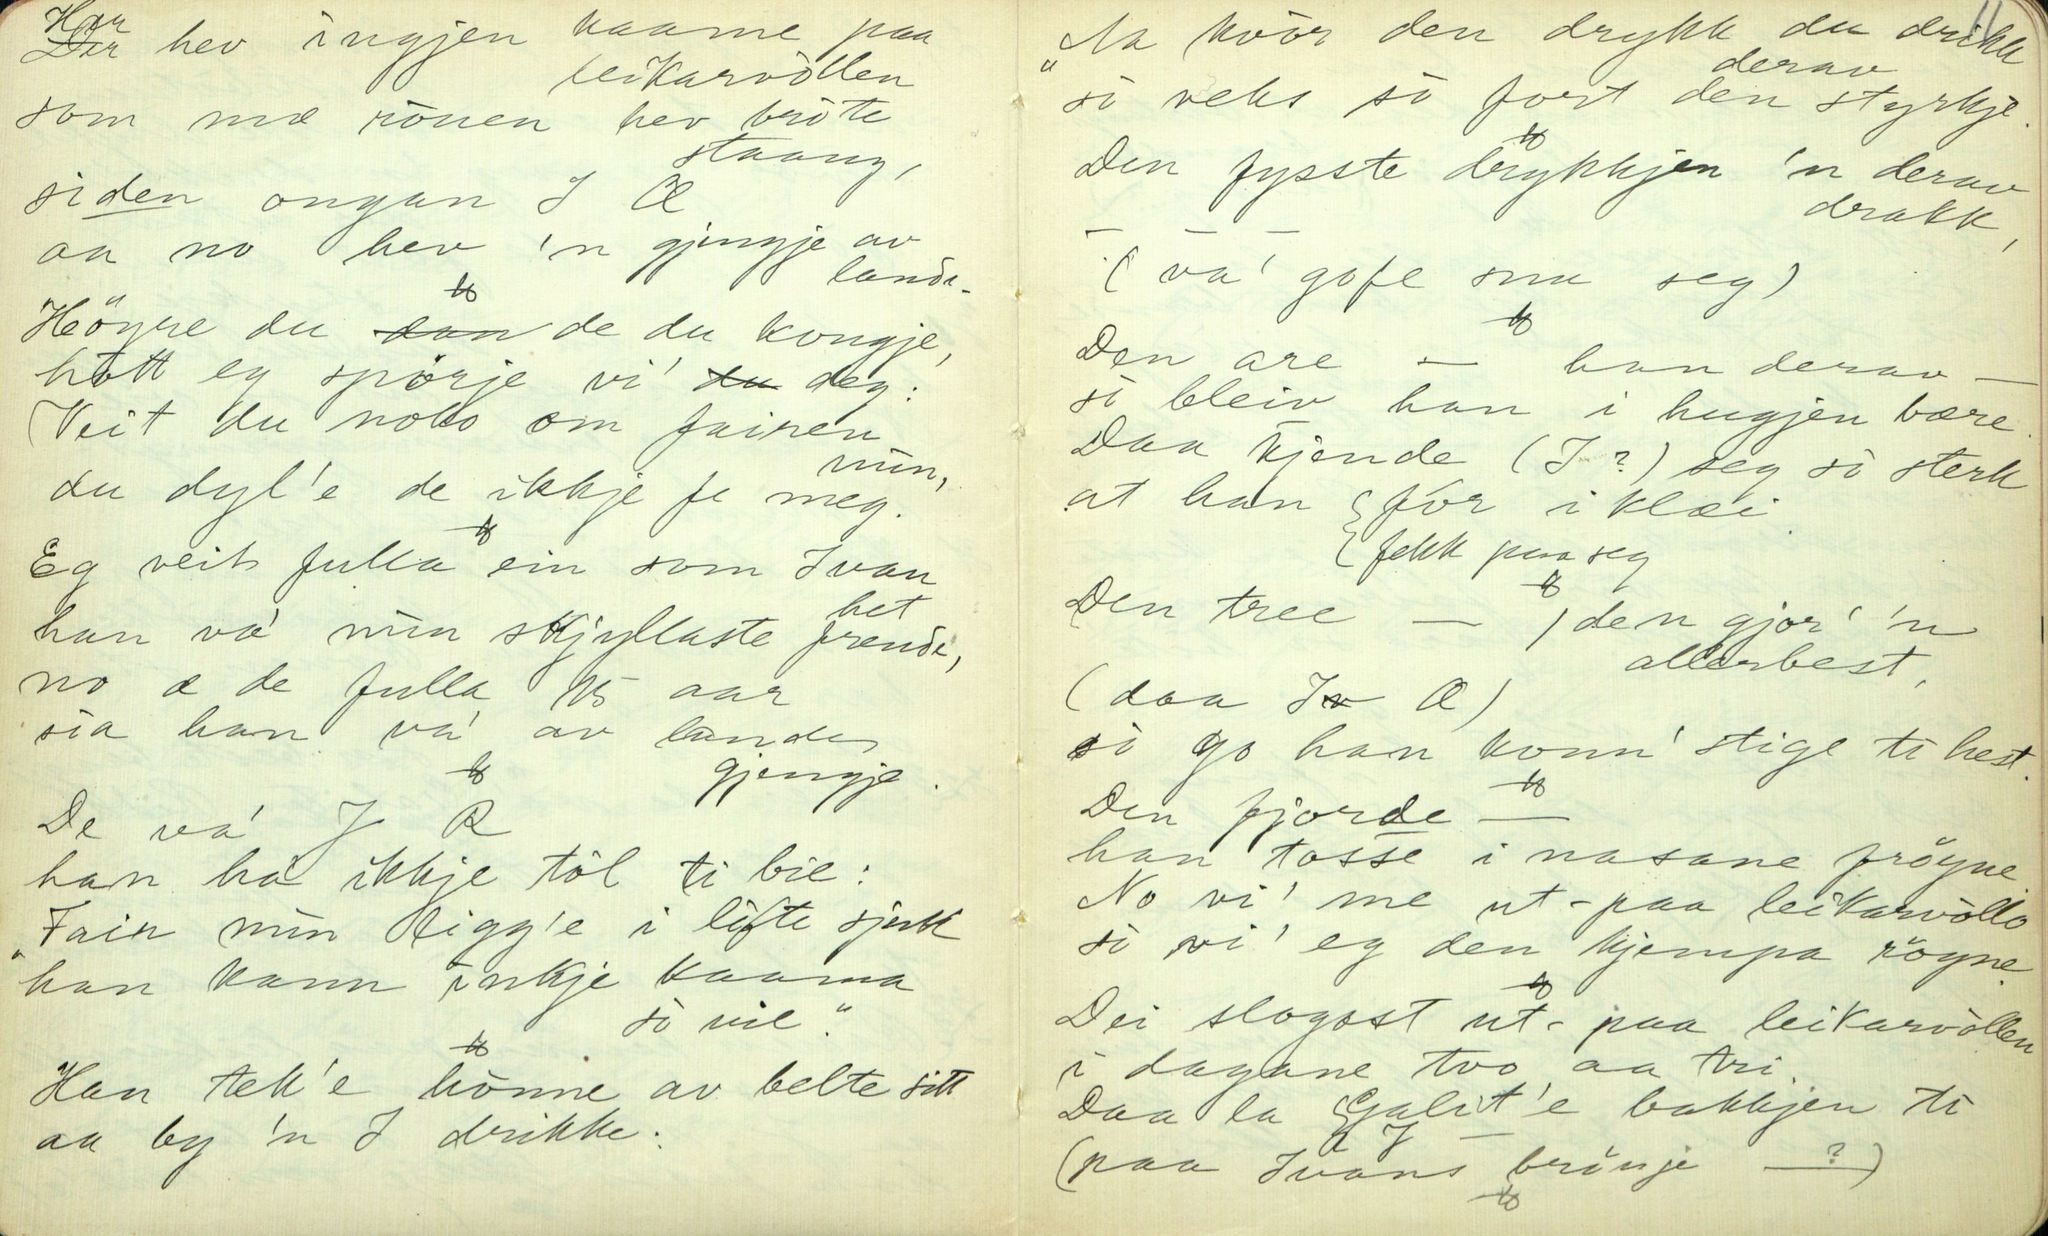 Her
Der hev ingjen kaame paa
leikarvöllen
som mæ rönen hev bröte
staang,
siden ongan I Æ
aa no hev 'n gjengje av
lande.
Höyre du dan de du kongje,
hött eg spörje vi' du deg:
Veit du noko om fairen
min,
du dyl'e de ikkje fe meg.
Eg veit fulla ein som Ivan
het
han va' min skjyllaste frende,
no æ de fulla 15 aar
sia han va' av landes
gjengje.
De va' I R
han ha ikkje tòl ti bie:
"Fair min ligg'e i lifte sjuk
han kann inkje kaama
sò vie."
Han tek'e hònne av belte sitt
aa by 'n I drikke:
11
"Aa kvòr den drykk du drikk
derav
sò veks sò fort den styrkje.
Den fysste drykkjen 'n derav
drakk,
(va' gofe snu seg)
Den are — han derav —
sò bleiv han i hugjen bære.
Daa kjende (I ?) seg sò sterk
at han { fór i klæi
{ fekk paa seg
Den tree — , den gjor' 'n
allerbest,
(daa Iv Æ)
sò go han konn' stige ti hest.
Den fjorde —
han tosse i nasane fröyne
No vi' me ut-paa leikarvòllo
sò vi' eg den kjempa röyne.
Dei slogost ut-paa leikarvòllen
i dagane tvo aa tri.
Daa la { Galit'e bakkjen ti
{ I —
(paa Ivans brönje — ?)